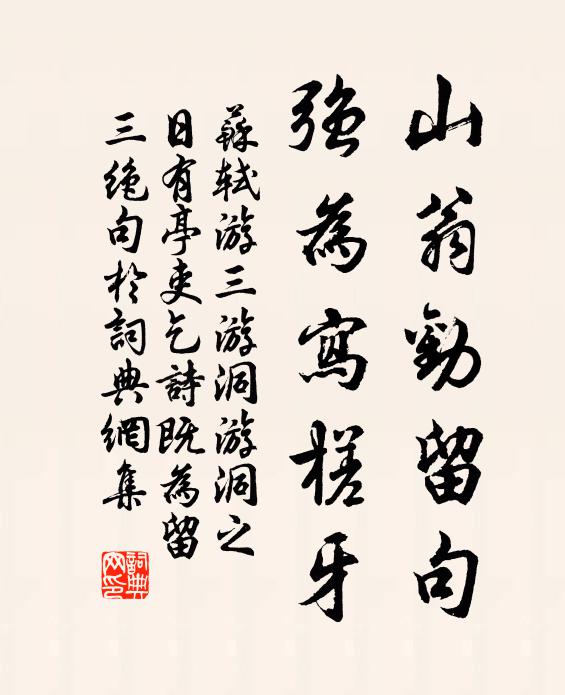 山翁勸留句
強為寫槎牙
蘇軾游三游洞游洞之
日有亭吏乞詩既為留
三絕句於詞典網集
詞典網印